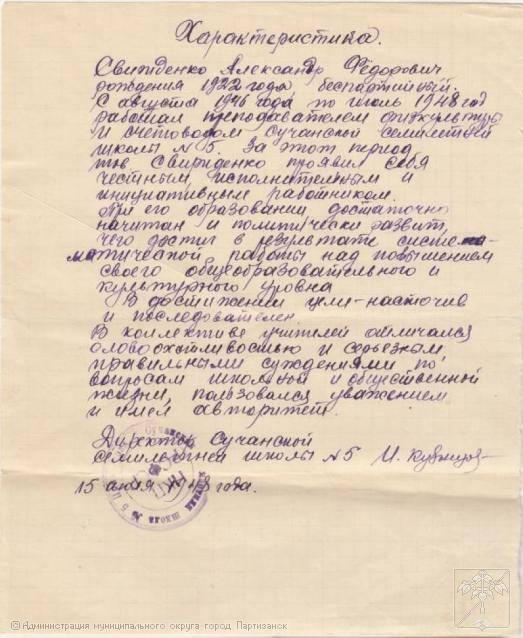 Характеристика.
Свириденко Александр Фёдорович
рождения 1922 года беспартийный.
С августа 1946 года по июль 1948 год
работал преподавателем физкультуры
и счетоводом Сучанской семилетней
школы № 5. За этот период
тов Свириденко проявил себя
честным, исполнительным и
инициативным работником.
При его образовании достаточно
начитан и политически развит,
чего достиг в результате система-
матической работы над повышением
своего общеобразовательного и
культурного уровня
В достижении цели-настойчив
и последователен
В коллективе учителей отличался
словоохотливостью и серьезным,
правильными суждениями по
вопросам школьной и общественной
жизни, пользовался уважением
и имел авторитет.
Директор Сучанской
семилетней школы № 5 И. Кузнецов
15 июля 1948 года.
школа № 5
© Администрация муниципального округа город Партизанск